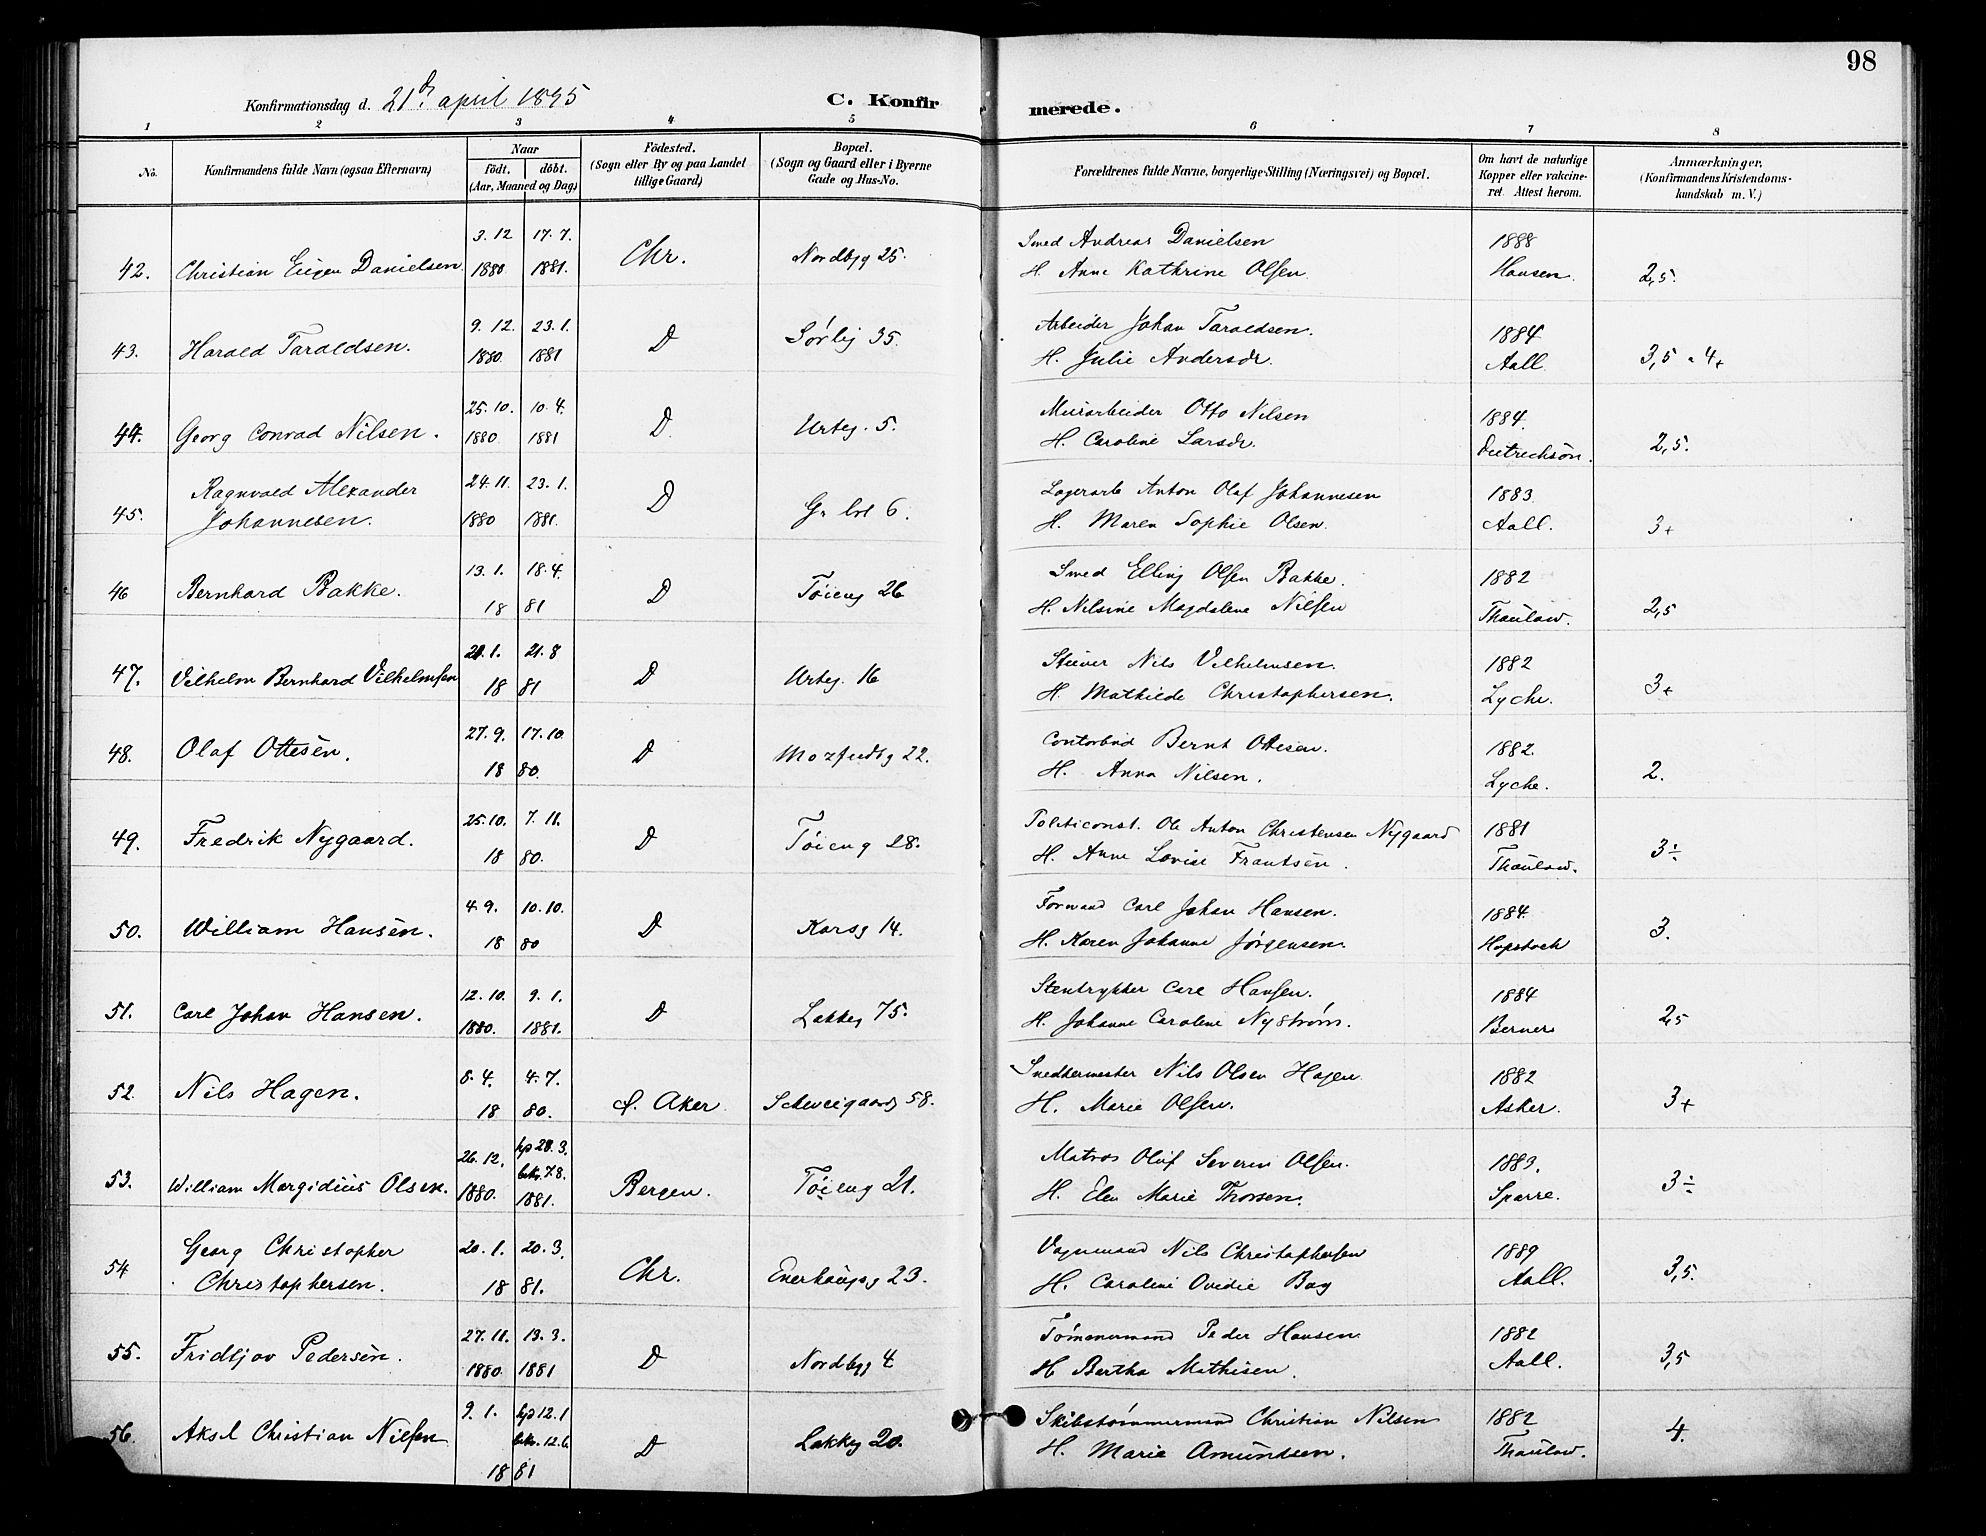 98
Konfirmationsdag d. 21de april 1895 C. Konfirmerede.
1 2 3 4 5 6 7 8
No.
Konfirmandens fulde Navn (ogsaa Efternavn)
Naar
Födt. döbt.
(Aar, Maaned og Dag)
Födested.
(Sogn eller By og paa Landet
tillige Gaard)
Bopæl.
(Sogn og Gaard eller i Byerne
Gade og Hus-No.
Forældrenes fulde Navne, borgerlige Stilling (Næringsvei) og Bopæl.
Om havt de naturlige
Kopper eller vakcine-
ret. Attest herom.
Anmærkninger,
(Konfirmandens Kristendoms-
kundskab m. V.)
3.12 17.7. Smed Andreas Danielsen 1888
42. Christian Eugen Danielsen 1880 1881. Chr. Nordbyg 25. H. Anne Kathrine Olsen Hansen. 2,5.
9.12. 23.1. Arbeider Johan Taraldsen. 1884
43. Harald Taraldsen. 1880 1881 D Sørlig 35. H. Julie Andersdr. Aall. 3,5 4+
25.10. 10.4. Murarbeider Otto Nilsen 1884.
44. Georg Conrad Nilsen. 1880 1881 D. Urteg. 5. H. Caroline Larsdr. Dietrichson. 2,5.
Ragnvald Alexander 24.11. 23.1. Lagerarb Anton Olaf Johannesen 1883.
45. Johannesen. 1880 1881. D Gr. lvl 6. H. Maren Sophie Olsen. Aall. 3+
13.1. 18.4. Smed Elling Olsen Bakke. 1882
46 Bernhard Bakke. 18 81 D Tøieng 26 H. Nilsine Magdalene Nilsen Thaulow. 2,5
21.1. 21.8 Stuver Nils Vilhelmsen. 1882
47. Vilhelm Bernhard Vilhelmsen 18 81 D Urteg. 16 H. Mathilde Christophersen. Lyche. 3+
27.9. 17.10. Contorbud Bernt Ottesen. 1882.
48. Olaf Ottesen. 18 80. D 22. H. Anna Nilsen. Lyche. 2.
25.10. 7.11. Politiconst. Ole Anton Christensen Nygaard 1881
49. Fredrik Nygaard. 18 80. D Tøieng 28. H. Anne Lovise Frantsen. Thaulow. 3÷
4.9. 10.10. Formand Carl Johan Hansen. 1884.
50. William Hansen. 18 80 D Korsg 14. H. Karen Johanne Jørgensen. Hopstock 3.
12.10. 9.1. Stentrykker Carl Hansen. 1884
51. Carl Johan Hansen. 1880. 1881. D Lakkeg 75. H. Johanne Caroline Nystrøm. Berner 2,5
8.4. 4.7. Snedkermester Nils Olsen Hagen 1882
52. Nils Hagen. 18 80. Aker Schweigaardsg 58. H. Marie Olsen. Asker. 3+
26.12. hjd 20.3. bekr. 7.8. Matros Oluf Severin Olsen. 1883.
53. William Margidius Olsen. 1880. 1881. Bergen. Tøieng 21. H. Elen Marie Thorsen. Sparre. 3÷
Georg Christopher 20.1. 20.3. Vognmand Nils Christophersen 1889
54 Christophersen. 18 81. Chr. Enerhaugsg 23. H. Caroline Ovidie Bay Aall. 3,5.
27.11. 13.3. Tømmermand Peder Hansen 1882
55. Fridtjov Pedersen. 1880. 1881 D Nordbyg 4 H Bertha Mathisen. Aall. 3,5
9.1. hjd 12.1 bekr. 12.6. Skibstømmermand Christian Nilsen 1882
56. Aksel Christian Nilsen 18 81 D Lakkeg 20. H. Marie Amundsen. Thaulow. 4.